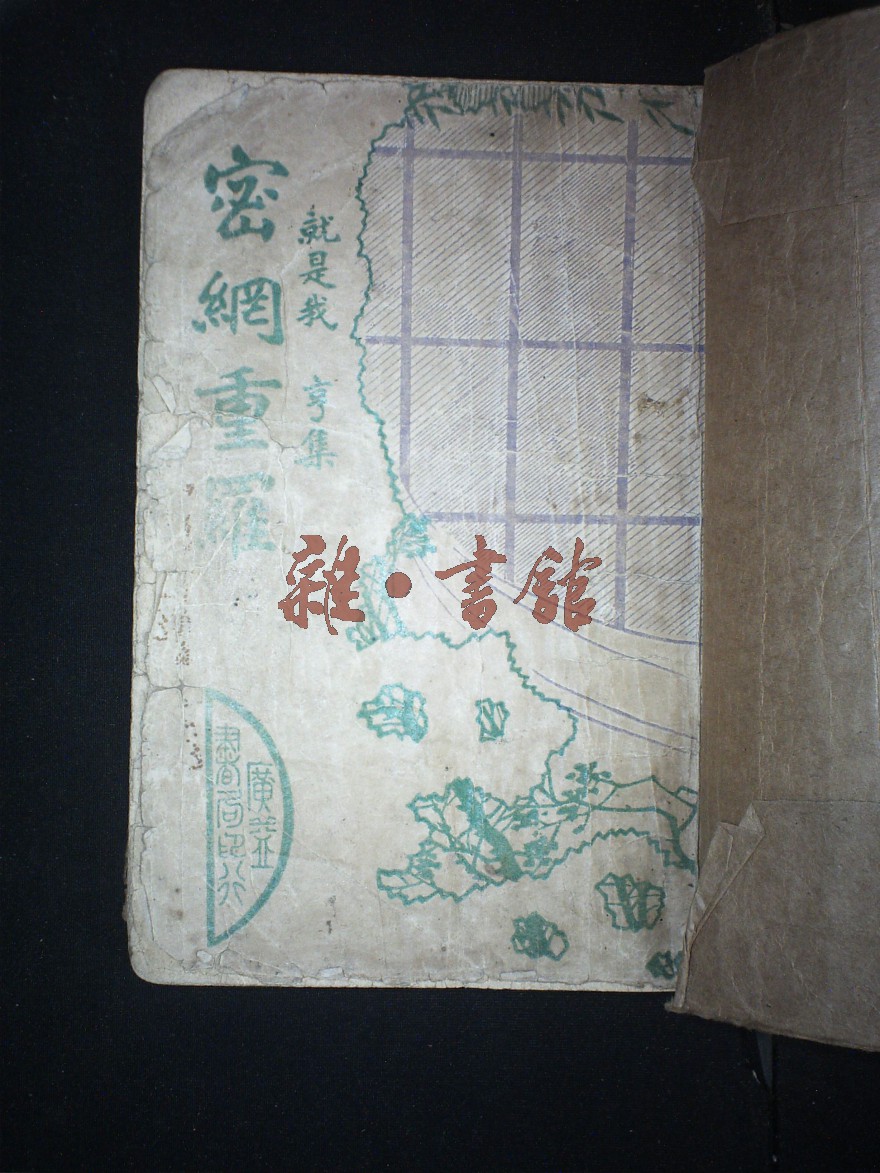 密網重羅
就是我 亨集
廣益
書局印行
雜·書館